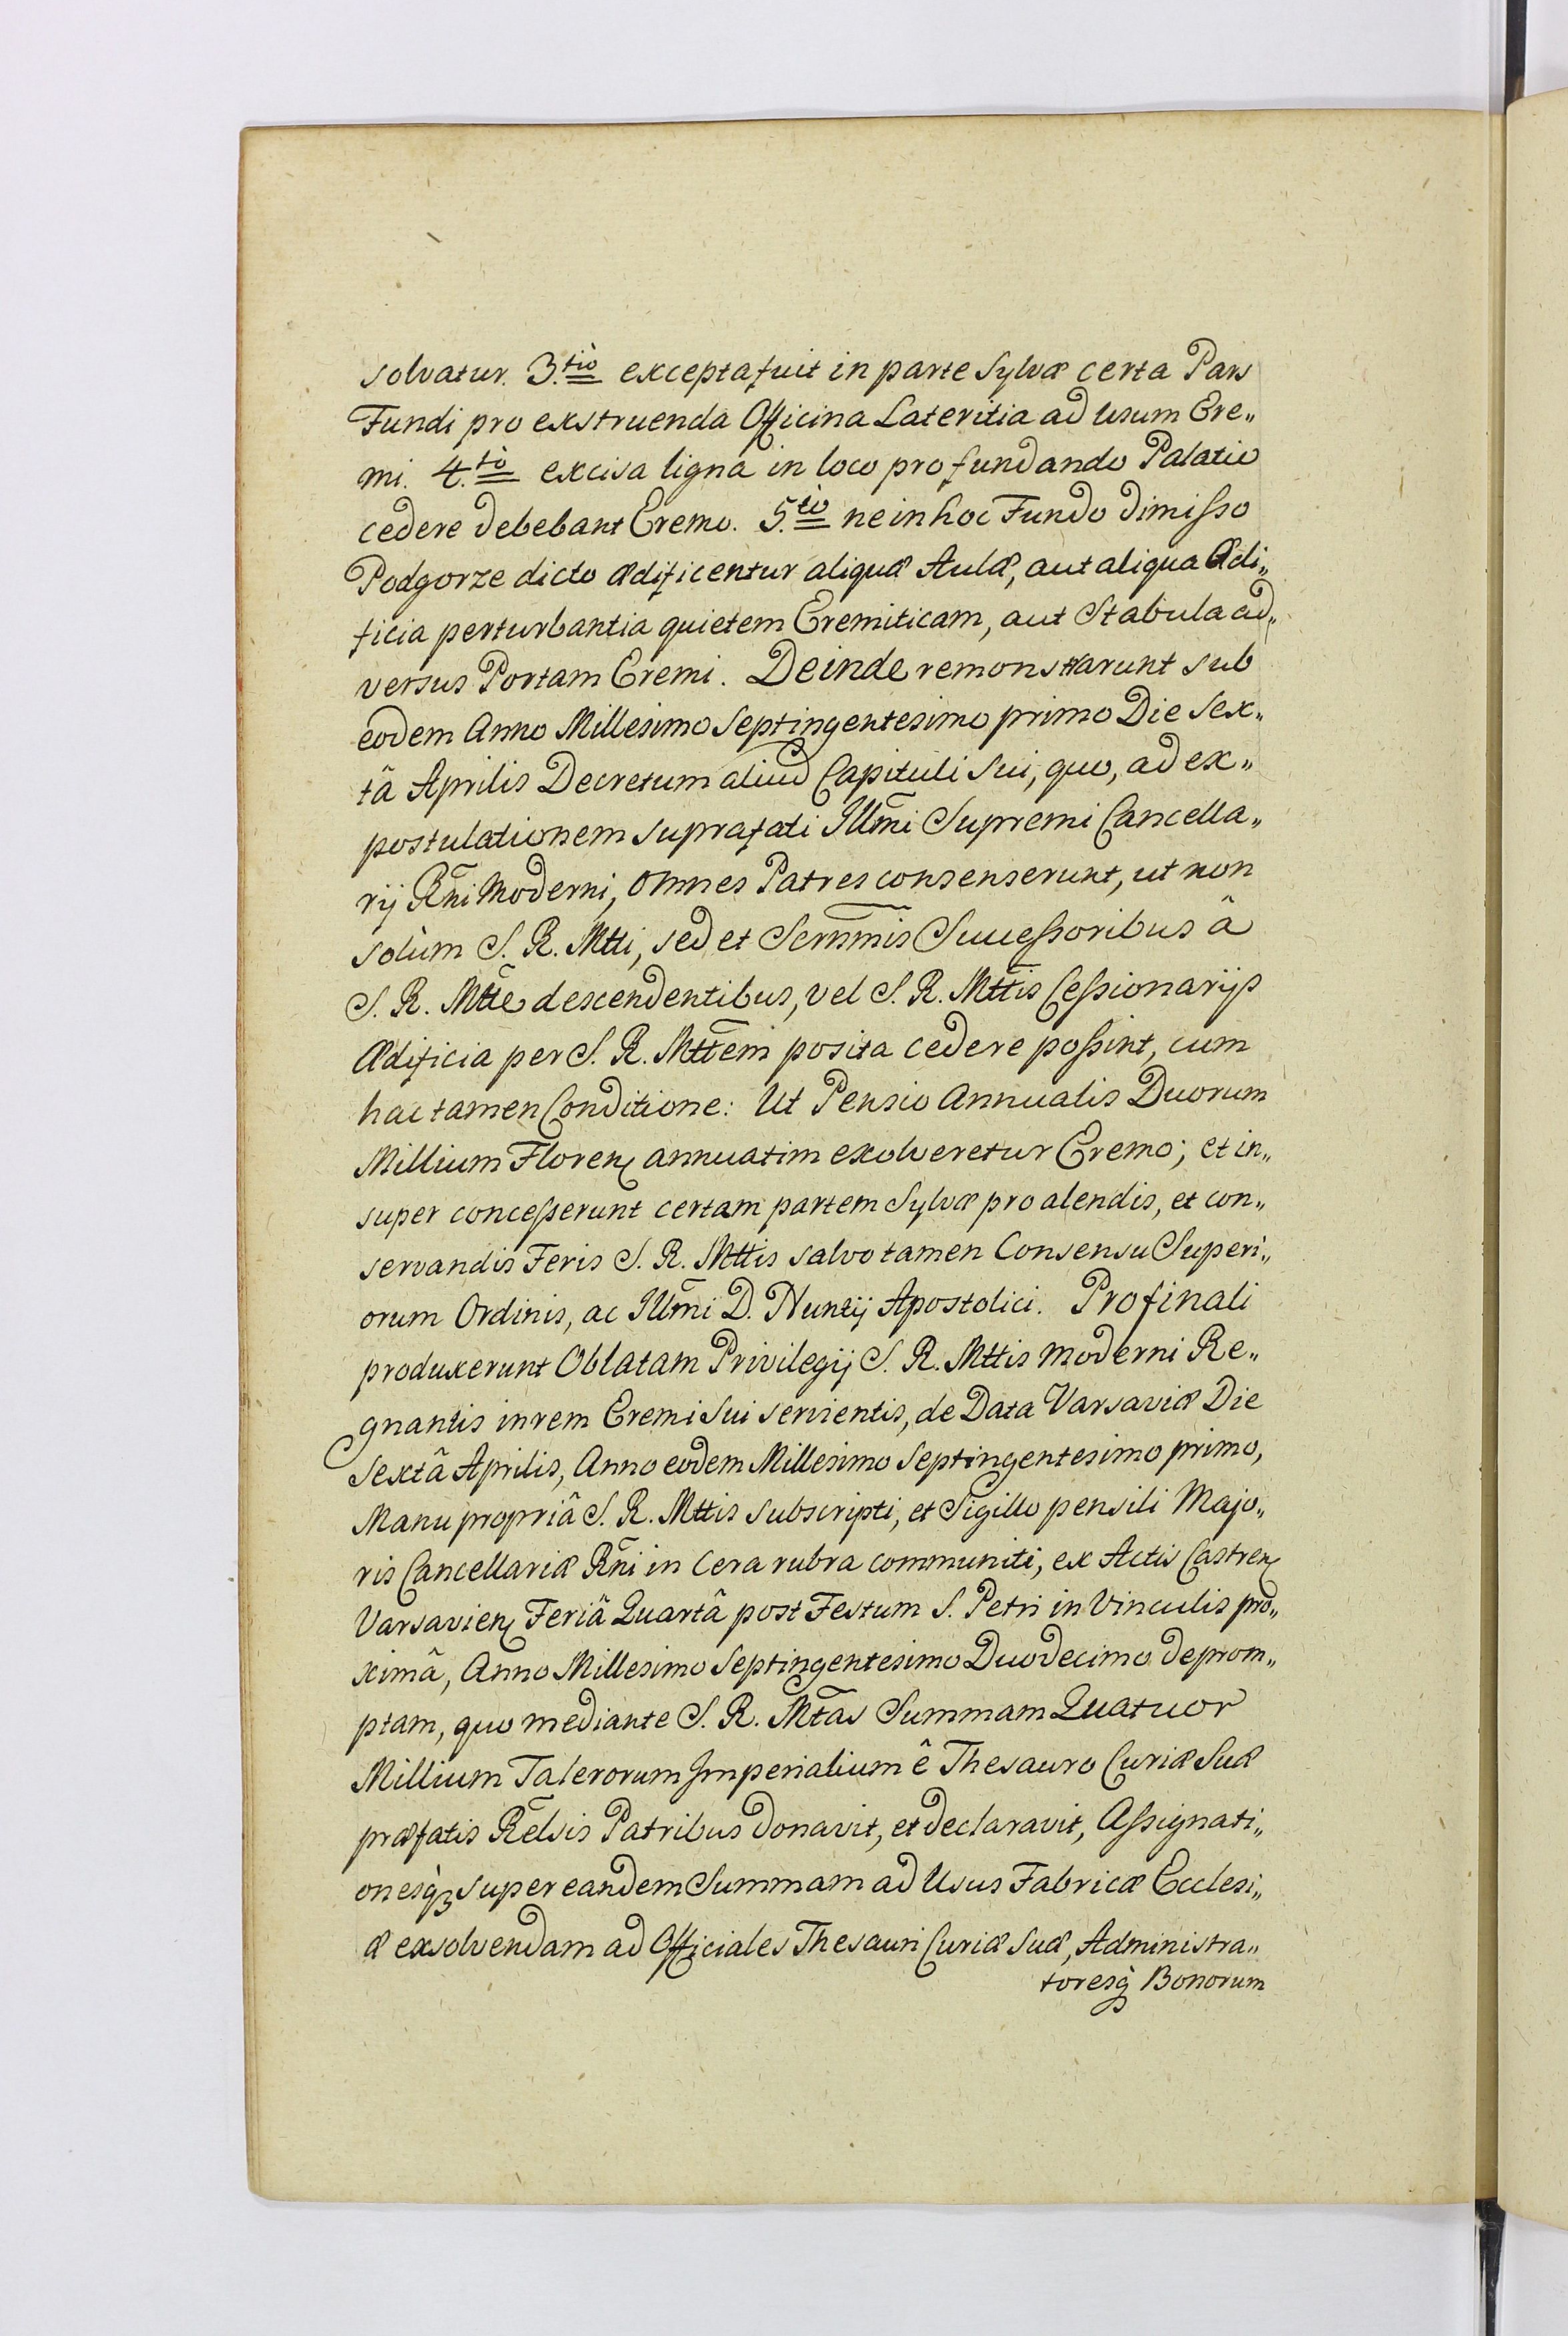 solvatur. 3.tiò excepta fuit in parte Sylvæ certa Pars
Fundi pro exstruenda Officina Lateritia ad Usum Ere„
mi. 4.tò excisa ligna in loco pro fundando Palatio
cedere debebant Eremo. 5.tò ne in hoc Fundo dimisso
Podgorze dicto ædificentur aliquæ Aulæ, aut aliqua Ædi„
ficia perturbantia quietem Eremiticam, aut Stabula ad„
versus Portam Eremi. Deinde remonstrarunt sub
eodem Anno Millesimo Septingentesimo primo Die Sex„
tâ Aprilis Decretum aliud Capituli Sui, quo, ad ex„
postulationem suprafati Illm̃i Supremi Cancella„
rij Rñi Moderni, omnes Patres consenserunt, ut non
solùm S. R. Mtti, sed et Sernm̃is Successoribus â
S. R. Mtt̃e descendentibus, vel S. R. Mtt̃is Cessionarijs
Ædificia per S. R. Mtt̃em posita cedere possint, cum
hac tamen Conditione: Ut Pensio Annualis Duorum
Millium Floren annuatim exolveretur Eremo; et in„
super concesserunt certam partem Sylvæ pro alendis, et con„
servandis Feris S. R. Mttis salvo tamen Consensu Superi„
orum Ordinis, ac Illm̃i D. Nuntij Apostolici. Pro finali
produxerunt Oblatam Privilegij S. R. Mttis moderni Re„
gnantis in rem Eremi sui servientis, de Data Varsaviæ Die
Sextâ Aprilis, Anno eodem Millesimo Septingentesimo primo,
Manu propriâ S. R. Mttis subscripti, et Sigillo pensili Majo„
ris Cancellariæ Rñi in Cera rubra communiti, ex Actis Castren
Varsavien Feriâ Quartâ post Festum S. Petri in Vinculis pro„
ximâ, Anno Millesimo Septingentesimo Duodecimo deprom„
ptam, quo mediante S. R. Mt̃as Summam Quatuor
Millium Talerorum Imperialium ê Thesauro Curiæ Suæ
præfatis Rel̃sis Patribus donavit, et declaravit, Assignati„
onesq3 super eandem Summam ad Usus Fabricæ Ecclesi„
æ exsolvendam ad Officiales Thesauri Curiæ Suæ, Administra„
toresq̀ Bonorum